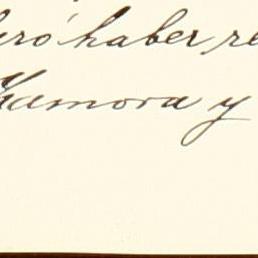 ró haber re
Zamora y